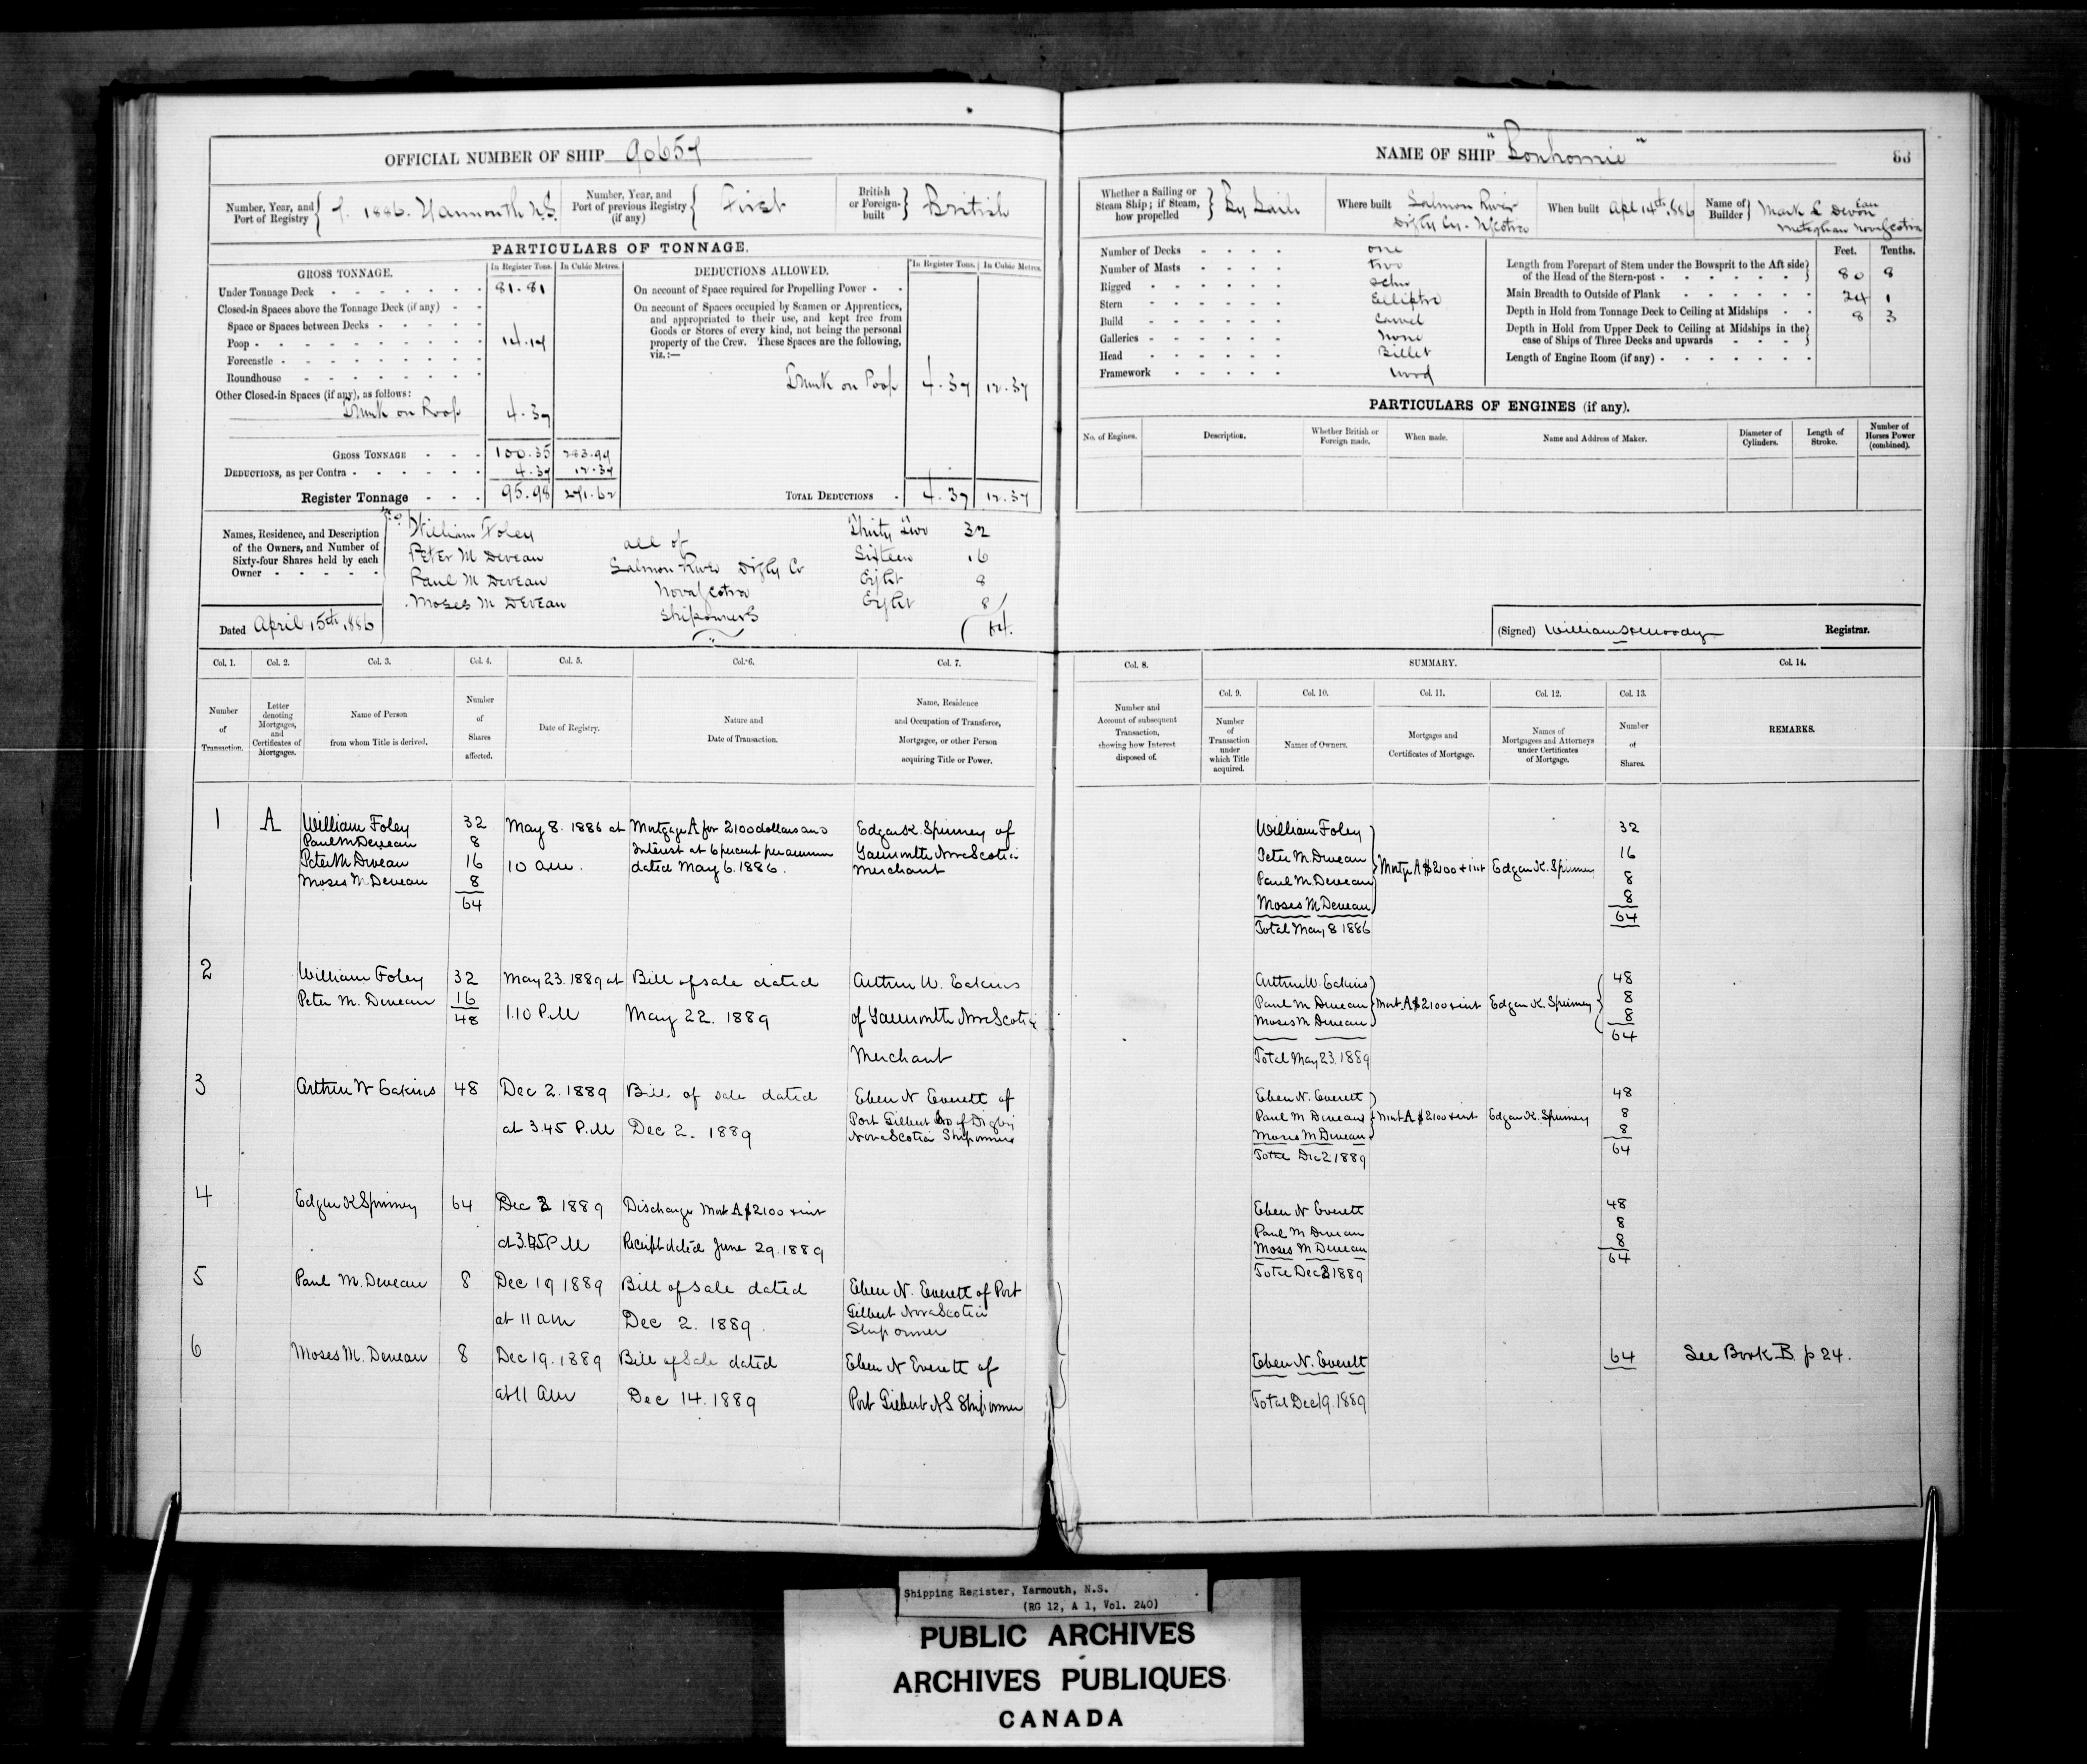 OFFICIAL NUMBER OF SHIP 90657
Number, Year, and Port of Registry 7. 1886. Yarmouth N.S.
Number, Year, and Port of previous Registry (if any) First
British or Foreign-built British
PARTICULARS OF TONNAGE.
GROSS TONNAGE. In Register Tons. In Cubic Metres.
Under Tonnage Deck 81.81
Closed-in Spaces above the Tonnage Deck (if any)
Space or Spaces between Decks
Poop 14.17
Forecastle
Roundhouse
Other Closed-in Spaces (if any), as follows:
Trunk on Poop 4.37
GROSS TONNAGE 100.35 283.99
DEDUCTIONS, as per Contra 4.37 12.37
Register Tonnage 95.98 271.62
DEDUCTIONS ALLOWED. In Register Tons. In Cubic Metres.
On account of Space required for Propelling Power
On account of Spaces occupied by Seamen or Apprentices,
and appropriated to their use, and kept free from
Goods or Stores of every kind, not being the personal
property of the Crew. These Spaces are the following,
viz.:—
Trunk on Poop 4.37 12.37
TOTAL DEDUCTIONS 4.37 12.37
Names, Residence, and Description
of the Owners, and Number of
Sixty-four Shares held by each
Owner
William Foley Thirty Two 32
Peter M Deveau all of Sixteen 16
Paul M Deveau Salmon River Digby Co Eight 8
Moses M Deveau Nova Scotia Eight 8
shipowners 64.
Dated April 15th 1886
NAME OF SHIP "Bonhomie"
Whether a Sailing or Steam Ship; if Steam, how propelled By Sails
Where built Salmon River Digby Cy. N Scotia
When built Apl 14th 1886
Name of Builder Mark L Deveau Meteghan Nova Scotia
Number of Decks one
Number of Masts two
Rigged schr
Stern Elliptic
Build Carvel
Galleries None
Head Billet
Framework wood
Feet. Tenths.
Length from Forepart of Stem under the Bowsprit to the Aft side
of the Head of the Stern-post 80 8
Main Breadth to Outside of Plank 24 1
Depth in Hold from Tonnage Deck to Ceiling at Midships 8 3
Depth in Hold from Upper Deck to Ceiling at Midships in the
case of Ships of Three Decks and upwards
Length of Engine Room (if any)
PARTICULARS OF ENGINES (if any).
No. of Engines. Description. Whether British or Foreign made. When made. Name and Address of Maker. Diameter of Cylinders. Length of Stroke. Number of Horses Power (combined).
(Signed) William H Moody Registrar.
Col. 1. Col. 2. Col. 3. Col. 4. Col. 5. Col. 6. Col. 7. Col. 8. SUMMARY. Col. 14.
Col. 9. Col. 10. Col. 11. Col. 12. Col. 13.
Number of Transaction.
Letter denoting Mortgages, and Certificates of Mortgages.
Name of Person from whom Title is derived.
Number of Shares affected.
Date of Registry.
Nature and Date of Transaction.
Name, Residence and Occupation of Transferee, Mortgagee, or other Person acquiring Title or Power.
Number and Account of subsequent Transaction, showing how Interest disposed of.
Number of Transaction under which Title acquired.
Names of Owners.
Mortgages and Certificates of Mortgage.
Names of Mortgagees and Attorneys under Certificates of Mortgage.
Number of Shares.
REMARKS.
1 A William Foley 32 May 8. 1886 at Mortgage A for 2100 dollars and Edgar K. Spinney of
Paul M Deveau 8 Interest at 6 percent per annum Yarmouth Nova Scotia
Peter M Deveau 16 10 am. dated May 6. 1886. Merchant
Moses M Deveau 8
64
William Foley 32
Peter M. Deveau 16
Paul M. Deveau Mortge A $2100 + int Edgar K. Spinney 8
Moses M Deveau 8
64
Total May 8 1886
2 William Foley 32 May 23. 1889 at Bill of sale dated Arthur W. Eakins
Peter M. Deveau 16 1.10 P.M May 22. 1889 of Yarmouth Nova Scotia
48 Merchant
Arthur W. Eakins 48
Paul M Deveau Mort A $2100 + int Edgar K. Spinney 8
Moses M Deveau 8
64
Total May 23. 1889
3 Arthur W Eakins 48 Dec 2. 1889 Bill of sale dated Eben N Everett of
at 3.45 P.M Dec 2. 1889 Port Gilbert Co of Digby
Nova Scotia Shipowner
Eben N. Everett 48
Paul M Deveau Mort A $2100 + int Edgar K. Spinney 8
Moses M Deveau 8
64
Total Dec 2 1889
4 Edgar K Spinney 64 Dec 2 1889 Discharge Mort A $2100 + int
at P.M Receipt dated June 29. 1889
Eben N Everett 48
Paul M Deveau 8
Moses M Deveau 8
64
Total Dec 2 1889
5 Paul M. Deveau 8 Dec 19 1889 Bill of Sale dated Eben N. Everett of Port
at 11 am Dec 2. 1889. Gilbert Nova Scotia
Ship owner
6 Moses M. Deveau 8 Dec 19. 1889 Bill of Sale dated Eben N Everett of
at 11 am Dec 14. 1889 Port Gilbert N S Shipowner
Eben N. Everett 64 See Book B. p 24.
Total Dec 19. 1889
Shipping Register, Yarmouth, N.S.
(RG 12, A 1, Vol. 240)
PUBLIC ARCHIVES
ARCHIVES PUBLIQUES
CANADA